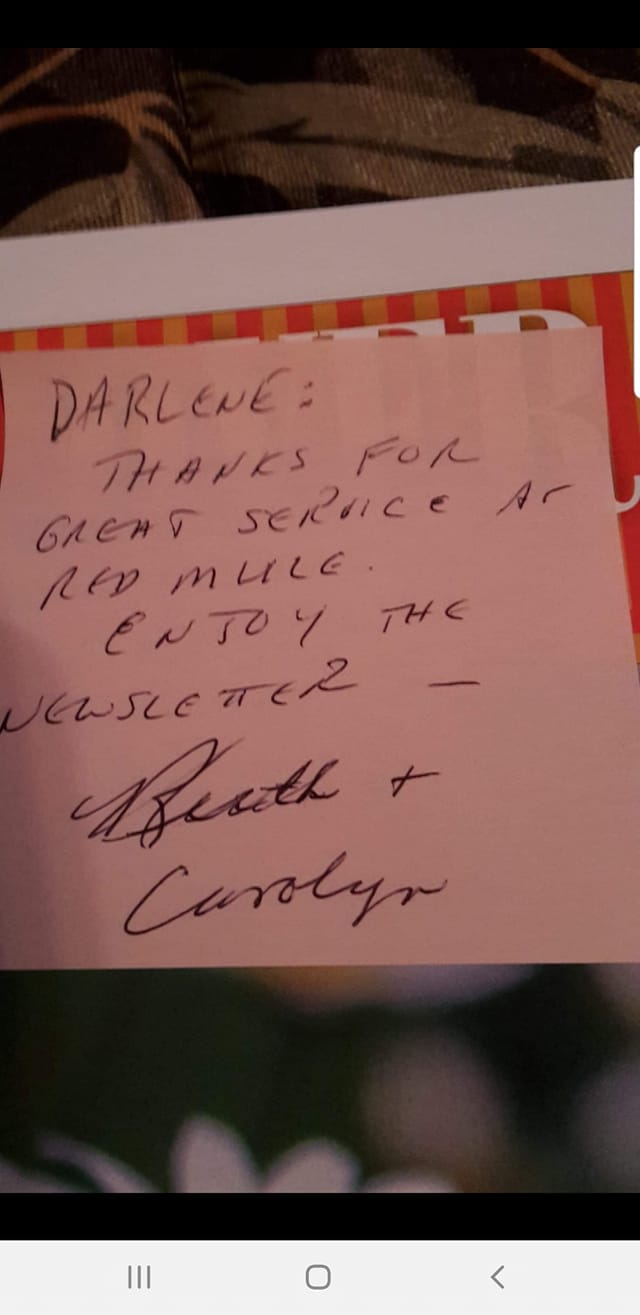 DARLENE:
THANKS FOR
GREAT SERVICE AT
RED MULE.
ENJOY THE
NEWSLETTER —
+
Carolyn